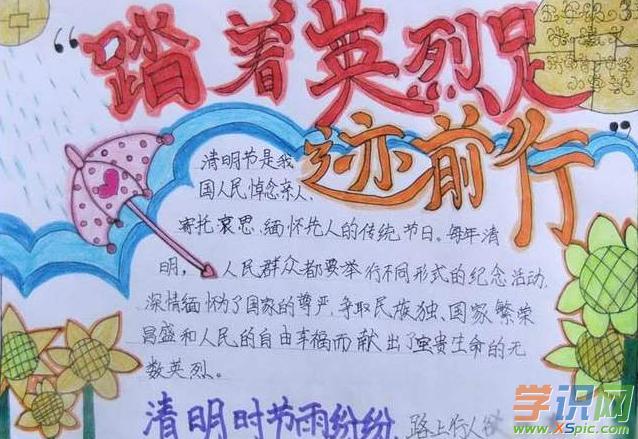 “踏着英烈足
迹前行
清明节是我
国人民悼念亲人、
寄托哀思、缅怀先人的传统节日。每年清
明，人民群众都要举行不同形式的纪念活动，
深情缅怀为了国家的尊严，争取民族独、国家繁荣
昌盛和人民的自由幸福而献出了宝贵生命的无
数英烈。
清明时节雨纷纷，路上行人欲
学识网
www.XSpic.com